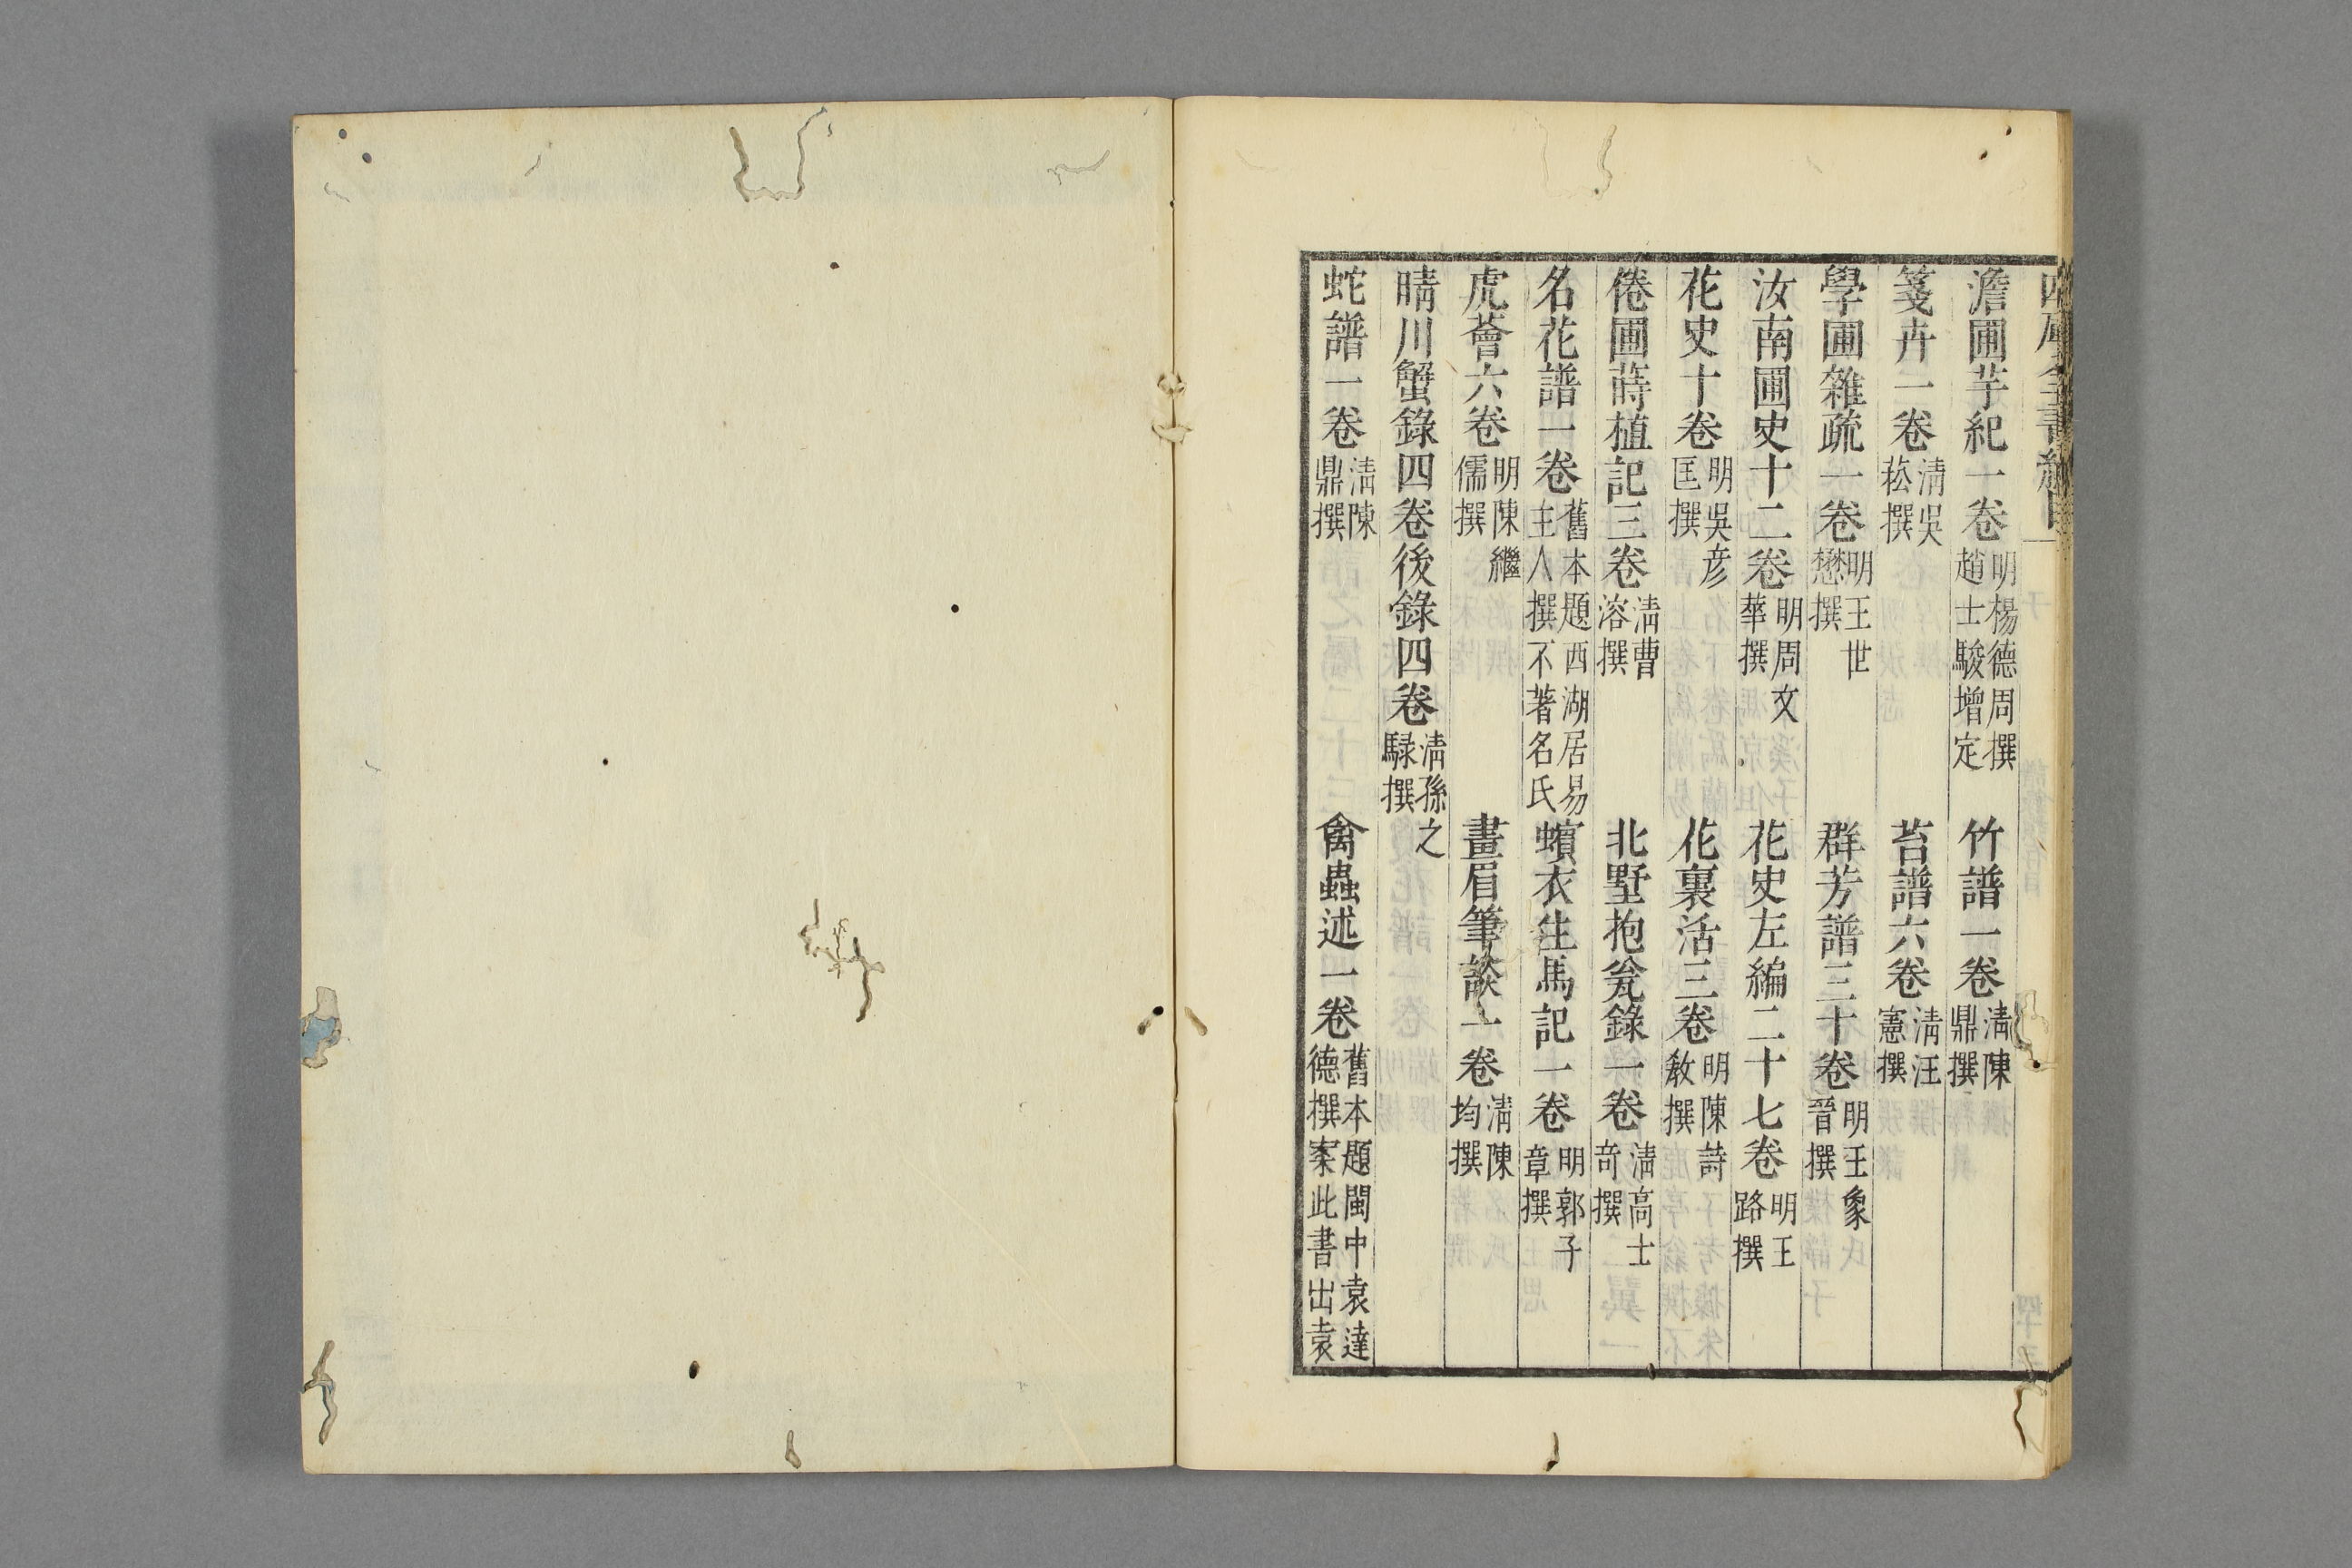 澹圃芋紀一卷 明楊德周撰 趙士駿增定 竹譜一卷 淸陳鼎撰
箋卉一卷 淸吳菘撰 苔譜六卷 淸汪憲撰
學圃雜疏一卷 明王世懋撰 群芳譜三十卷 明王象晉撰
汝南圃史十二卷 明周文華撰 花史左編二十七卷 明王路撰
花史十卷 明吳彥匡撰 花裏活三卷 明陳詩敎撰
倦圃蒔植記三卷 淸曹溶撰 北墅抱瓮錄一卷 淸高士奇撰
名花譜一卷 舊本題西湖居易主人撰不著名氏 蠙衣生馬記一卷 明郭子章撰
虎薈六卷 明陳繼儒撰 畫眉筆談一卷 淸陳均撰
晴川蟹錄四卷後錄四卷 淸孫之騄撰
蛇譜一卷 淸陳鼎撰 禽蟲述一卷 舊本題閩中袁達德撰案此書出袁